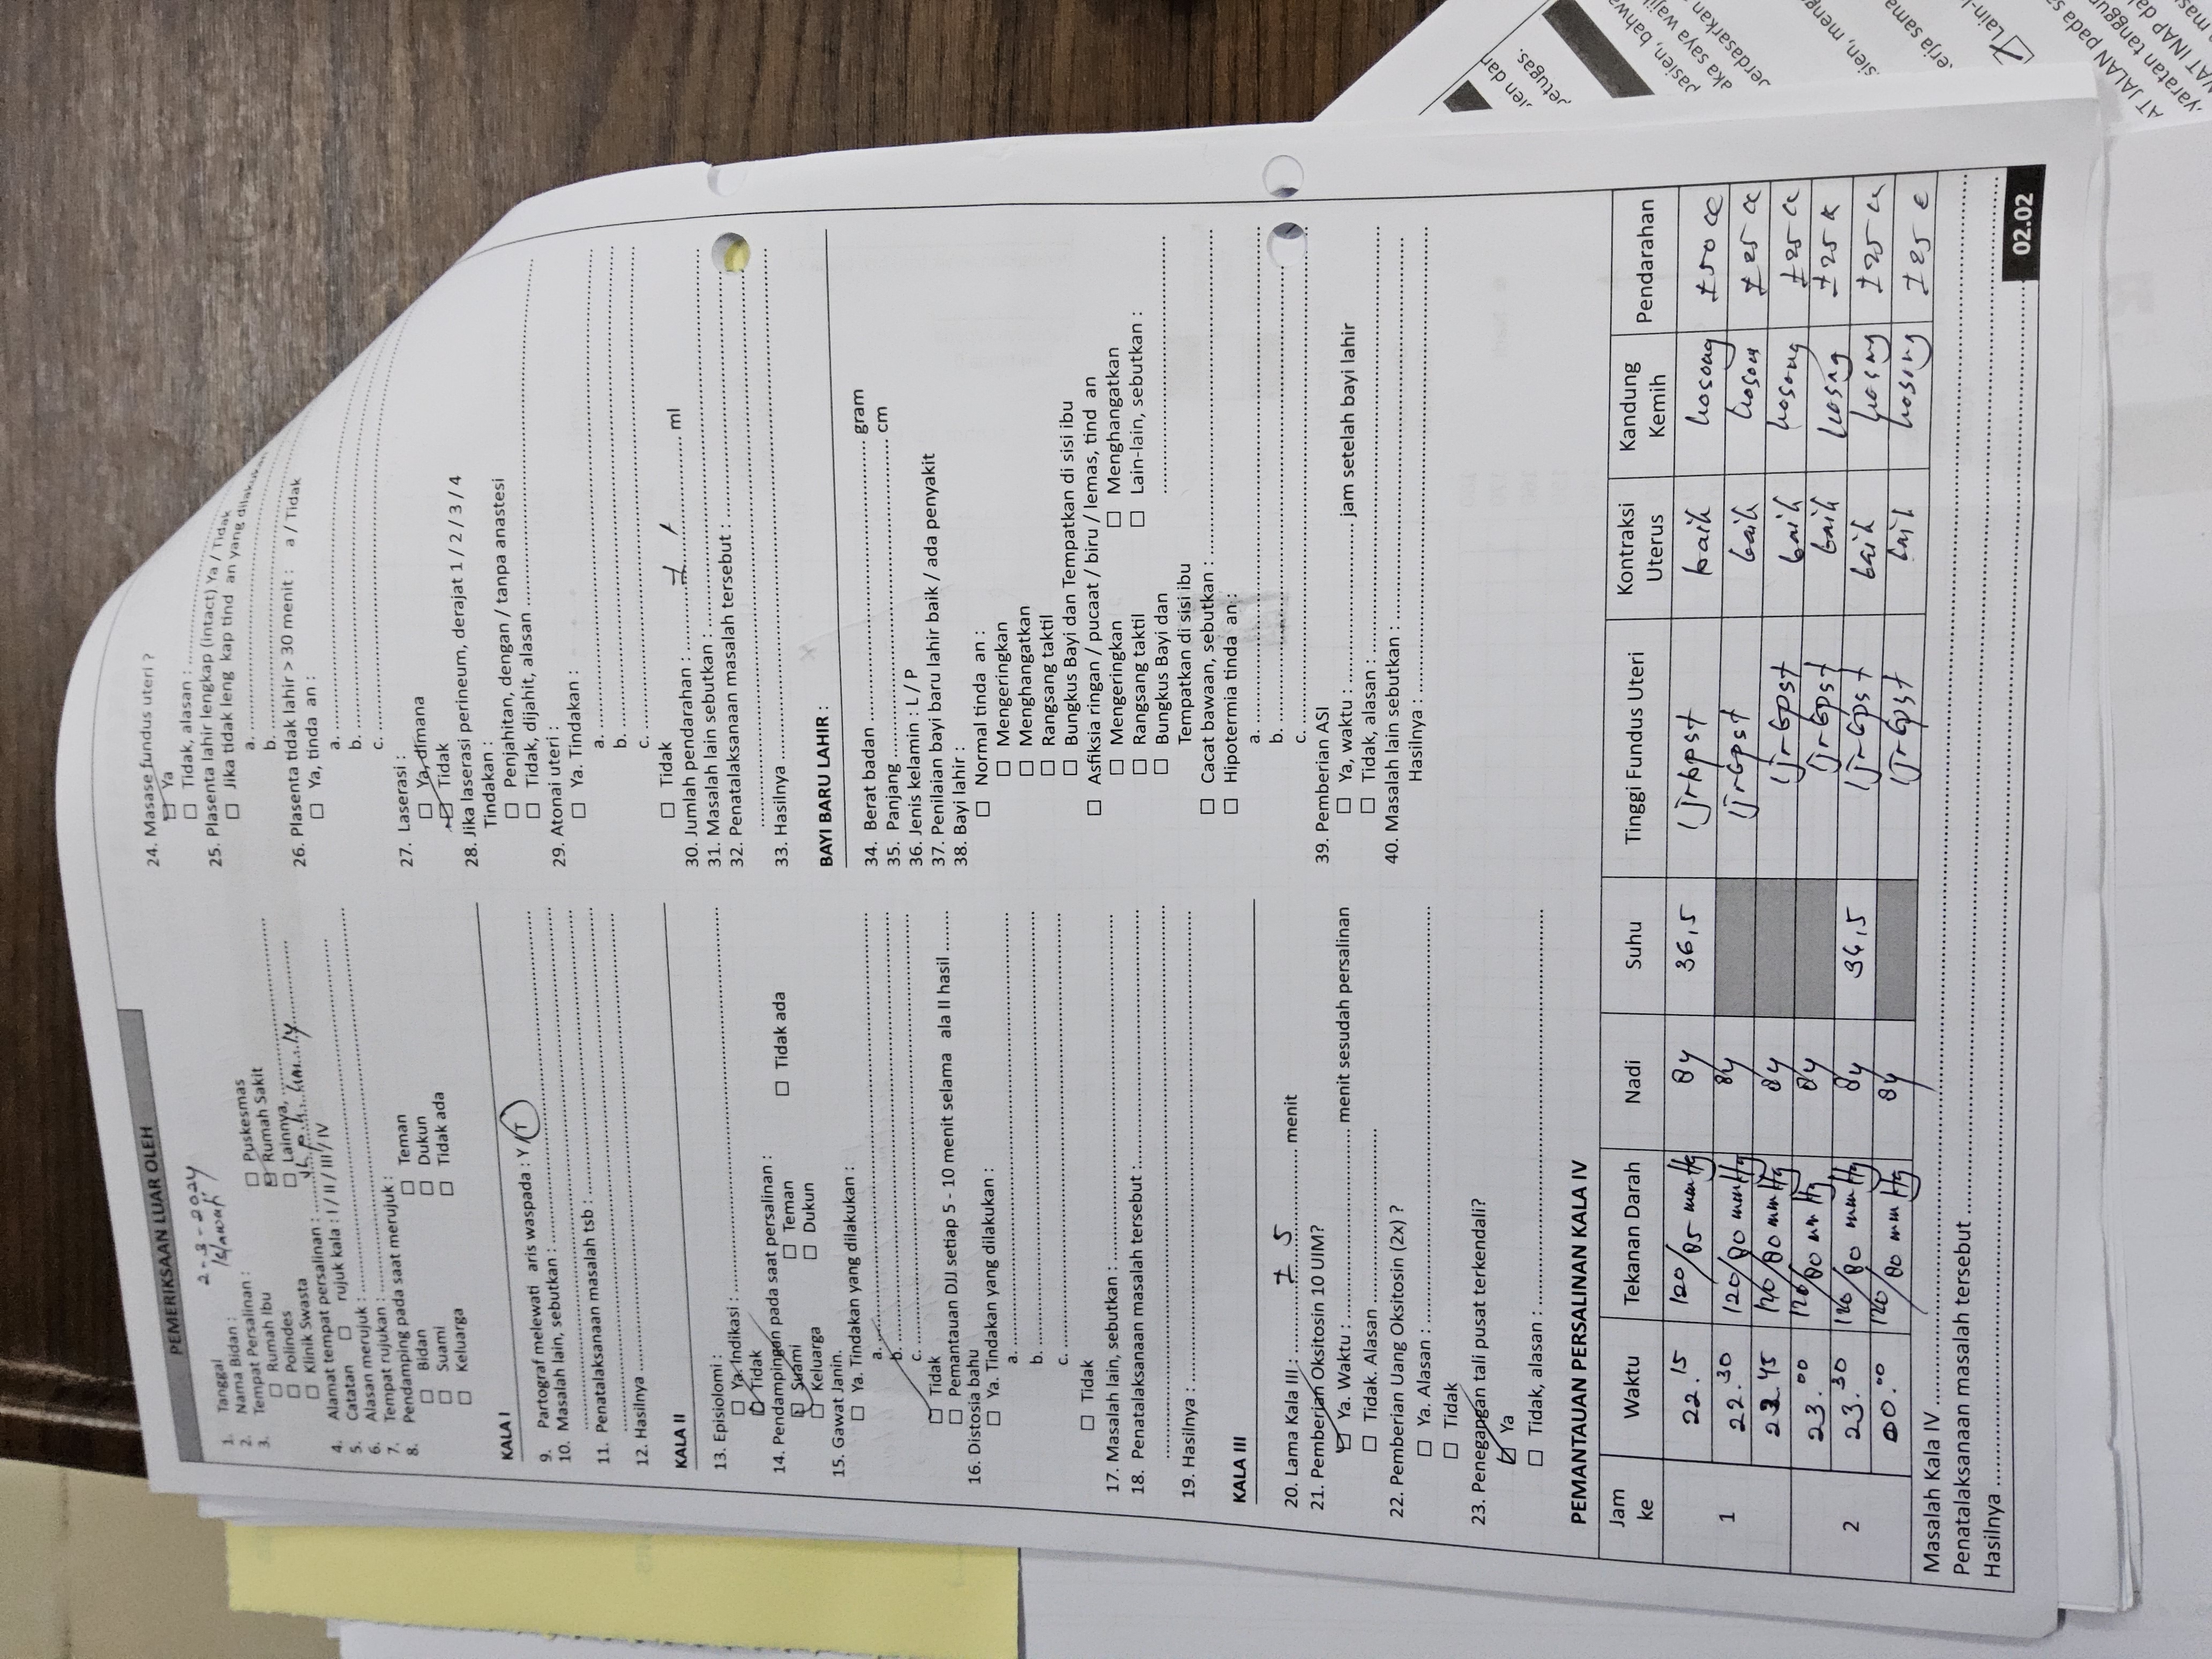 PEMERIKSAAN LUAR OLEH
1. Tanggal 2-3-2024
2. Nama Bidan :
3. Tempat Persalinan :
□ Rumah Ibu □ Puskesmas
□ Polindes ☑ Rumah Sakit
□ Klinik Swasta □ Lainnya, ..........
4. Alamat tempat persalinan : ..........
5. Catatan □ rujuk kala : I / II / III / IV
6. Alasan merujuk : ..........
7. Tempat rujukan : ..........
8. Pendamping pada saat merujuk :
□ Bidan □ Teman
□ Suami □ Dukun
□ Keluarga □ Tidak ada
KALA I
9. Partograf melewati aris waspada : Y / T
10. Masalah lain, sebutkan : ..........
11. Penatalaksanaan masalah tsb : ..........
12. Hasilnya ..........
KALA II
13. Episiolomi :
□ Ya. Indikasi : ..........
☑ Tidak
14. Pendampingan pada saat persalinan :
☑ Suami □ Teman □ Tidak ada
□ Keluarga □ Dukun
15. Gawat Janin.
□ Ya. Tindakan yang dilakukan :
a. ..........
b. ..........
c. ..........
☑ Tidak
□ Pemantauan DJJ setiap 5 - 10 menit selama ala II hasil ..........
16. Distosia bahu
□ Ya. Tindakan yang dilakukan :
a. ..........
b. ..........
c. ..........
□ Tidak
17. Masalah lain, sebutkan : ..........
18. Penatalaksanaan masalah tersebut : ..........
19. Hasilnya : ..........
KALA III
20. Lama Kala III : ± 5 menit
21. Pemberian Oksitosin 10 UIM?
☑ Ya. Waktu : .......... menit sesudah persalinan
□ Tidak. Alasan ..........
22. Pemberian Uang Oksitosin (2x) ?
□ Ya. Alasan : ..........
□ Tidak
23. Penegangan tali pusat terkendali?
☑ Ya
□ Tidak, alasan : ..........
24. Masase fundus uteri ?
☑ Ya
□ Tidak, alasan : ..........
25. Plasenta lahir lengkap (intact) Ya / Tidak
□ Jika tidak leng kap tind an yang dilakukan
a. ..........
b. ..........
26. Plasenta tidak lahir > 30 menit : a / Tidak
□ Ya, tinda an :
a. ..........
b. ..........
c. ..........
27. Laserasi :
□ Ya, dimana
☑ Tidak
28. Jika laserasi perineum, derajat 1 / 2 / 3 / 4
Tindakan :
□ Penjahitan, dengan / tanpa anastesi
□ Tidak, dijahit, alasan ..........
29. Atonai uteri :
□ Ya. Tindakan :
a. ..........
b. ..........
c. ..........
□ Tidak
30. Jumlah pendarahan : .......... ml
31. Masalah lain sebutkan : ..........
32. Penatalaksanaan masalah tersebut : ..........
33. Hasilnya ..........
BAYI BARU LAHIR :
34. Berat badan .......... gram
35. Panjang .......... cm
36. Jenis kelamin : L / P
37. Penilaian bayi baru lahir baik / ada penyakit
38. Bayi lahir :
□ Normal tinda an :
□ Mengeringkan
□ Menghangatkan
□ Rangsang taktil
□ Bungkus Bayi dan Tempatkan di sisi ibu
□ Asfiksia ringan / pucaat / biru / lemas, tind an
□ Mengeringkan □ Menghangatkan
□ Rangsang taktil □ Lain-lain, sebutkan :
□ Bungkus Bayi dan ..........
Tempatkan di sisi ibu
□ Cacat bawaan, sebutkan : ..........
□ Hipotermia tinda an :
a. ..........
b. ..........
c. ..........
39. Pemberian ASI
□ Ya, waktu : .......... jam setelah bayi lahir
□ Tidak, alasan : ..........
40. Masalah lain sebutkan : ..........
Hasilnya : ..........
PEMANTAUAN PERSALINAN KALA IV
Jam ke Waktu Tekanan Darah Nadi Suhu Tinggi Fundus Uteri Kontraksi Uterus Kandung Kemih Pendarahan
1 22.15 120/85 mmHg 84 36,5 1 jr bpst baik kosong ±50 cc
22.30 120/80 mmHg 84 1 jr bpst baik kosong ±25 cc
22.45 120/80 mmHg 84 1 jr bpst baik kosong ±25 cc
23.00 120/80 mmHg 84 1 jr bpst baik kosong ±25 cc
2 23.30 120/80 mmHg 84 36,5 1 jr bpst baik kosong ±25 cc
00.00 120/80 mmHg 84 1 jr bpst baik kosong ±25 cc
Masalah Kala IV ..........
Penatalaksanaan masalah tersebut ..........
Hasilnya ..........
02.02
etugas.
pasien, bahwa
aka saya waji
erja sama
Lain-l
AT JALAN pada sa